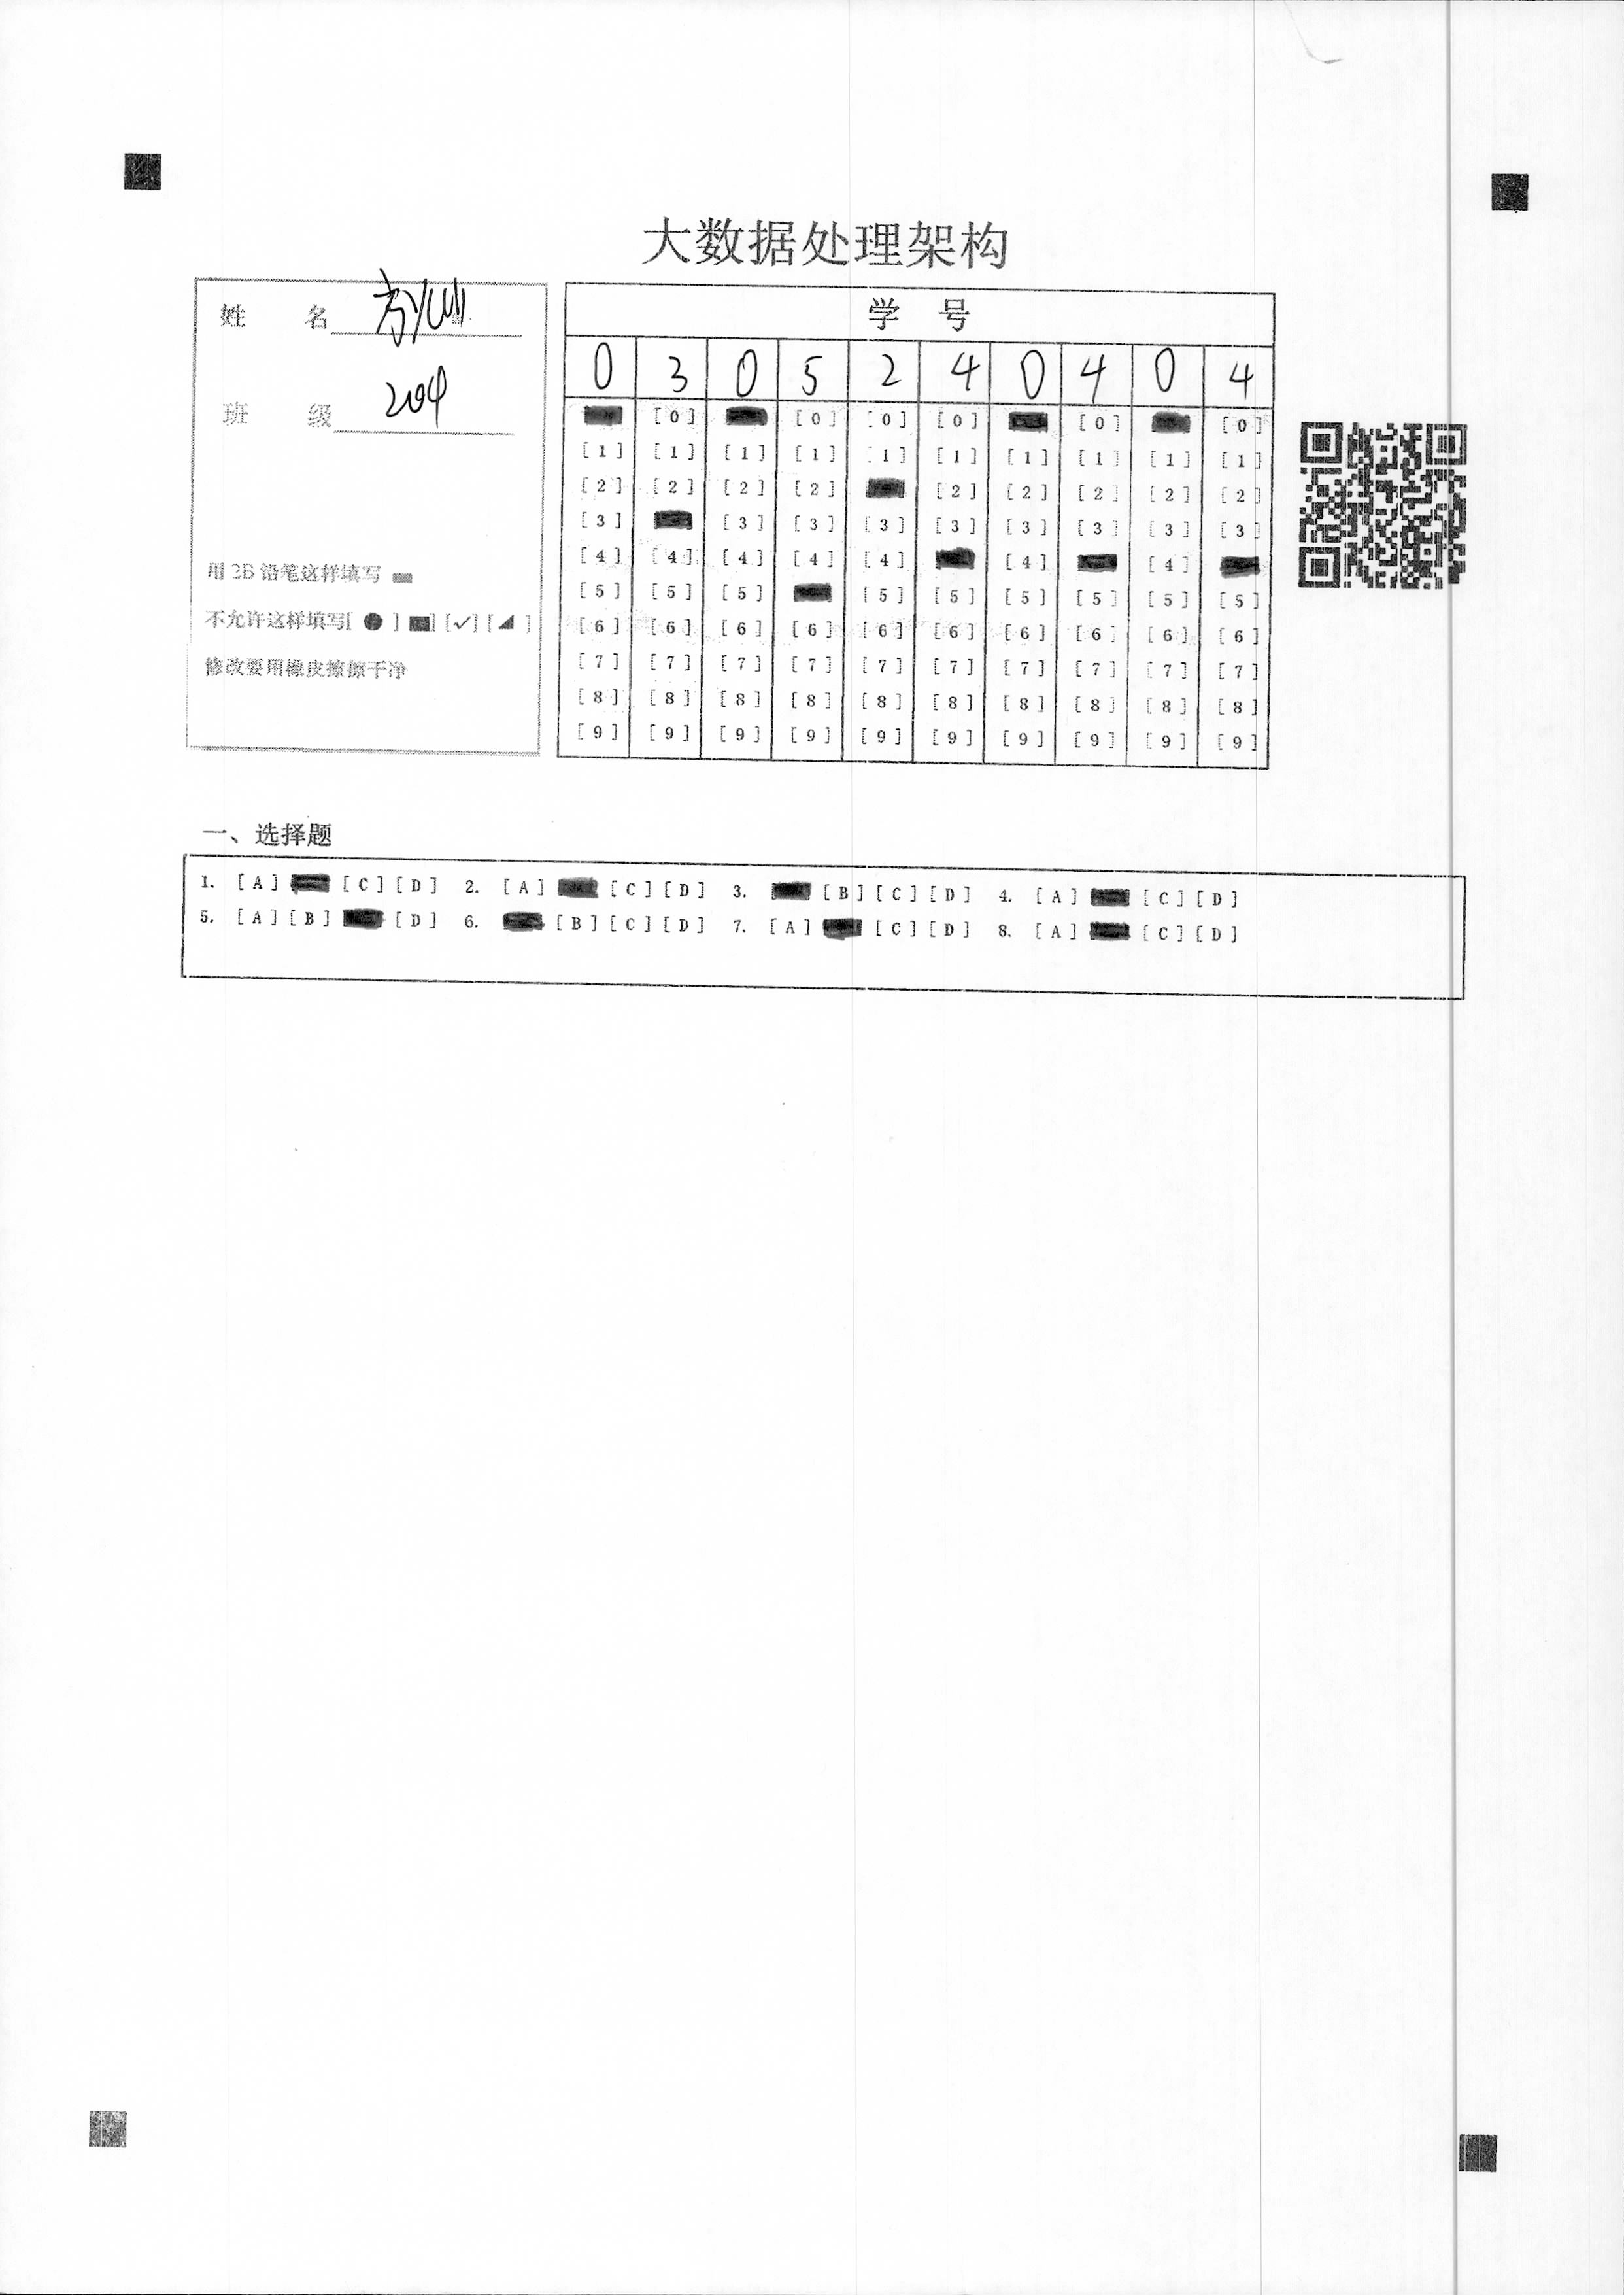 大数据处理架构
姓 名
班 级 204
用 2B 铅笔这样填写
不允许这样填写[ ● ] ■] [✓] [◢ ]
修改要用橡皮擦擦干净
学 号
0 3 0 5 2 4 0 4 0 4
[0] [0] [0] [0] [0] [0]
[1] [1] [1] [1] [1] [1] [1] [1] [1] [1]
[2] [2] [2] [2] [2] [2] [2] [2] [2]
[3] [3] [3] [3] [3] [3] [3] [3] [3]
[4] [4] [4] [4] [4] [4] [4]
[5] [5] [5] [5] [5] [5] [5] [5] [5]
[6] [6] [6] [6] [6] [6] [6] [6] [6] [6]
[7] [7] [7] [7] [7] [7] [7] [7] [7] [7]
[8] [8] [8] [8] [8] [8] [8] [8] [8] [8]
[9] [9] [9] [9] [9] [9] [9] [9] [9] [9]
一、选择题
1. [A] [C] [D] 2. [A] [C] [D] 3. [B] [C] [D] 4. [A] [C] [D]
5. [A] [B] [D] 6. [B] [C] [D] 7. [A] [C] [D] 8. [A] [C] [D]